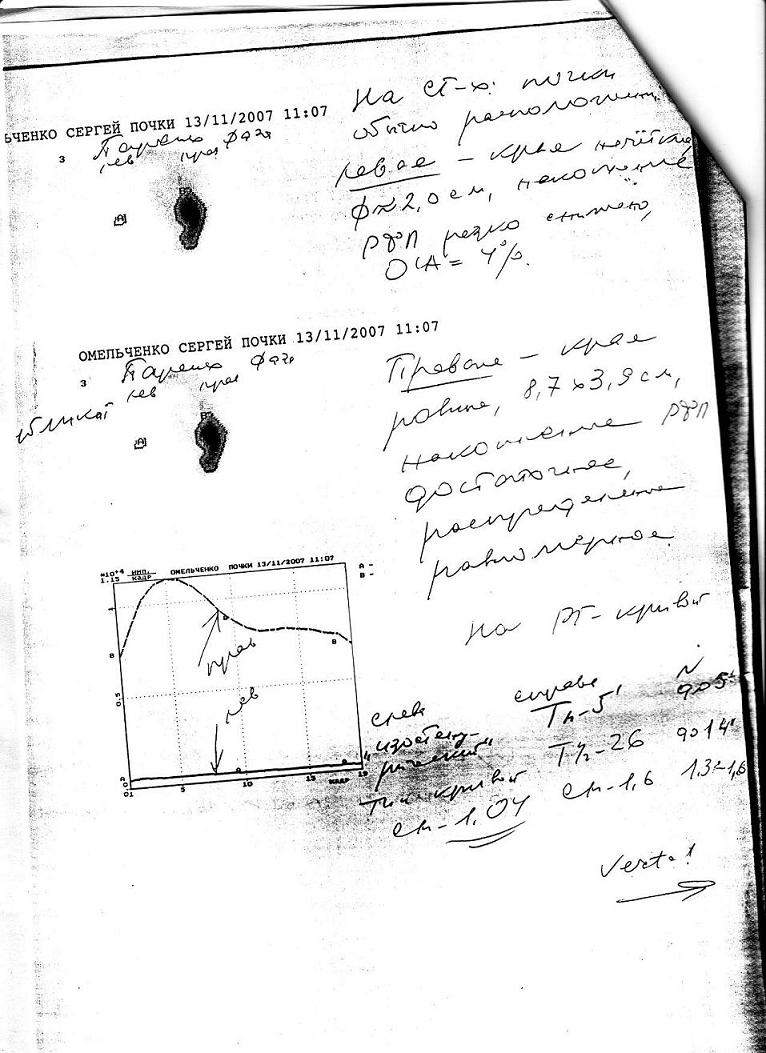 ЬЧЕНКО СЕРГЕЙ ПОЧКИ 13/11/2007 11:07
з Паренх фаза
лев прав
A
B
На СТ-х: почки
обычно расположены.
Левая – края нечёткие,
ф≈2,0 см, накопление
РФП резко снижено,
ОСА = 4%.
ОМЕЛЬЧЕНКО СЕРГЕЙ ПОЧКИ 13/11/2007 11:07
з Паренх фаза
лев прав
A
B
Правая – края
ровные, 8,7х3,9 см,
накопление РФП
достаточное,
распределение
равномерное.
×10^4 ИМП.
КАДР
ОМЕЛЬЧЕНКО ПОЧКИ 13/11/2007 11:07
A -
B -
1.15
1
0.5
0
B
B
B
прав
лев
A
A
A
01 5 10 15 КАДР 19
На РГ-кривой
слева
"изостену-
рический"
тип кривой
см-1,04
справа
Тм-5'
Т½-26
см-1,6
N
до 5'
до 14'
1,3-1,6
Verte!